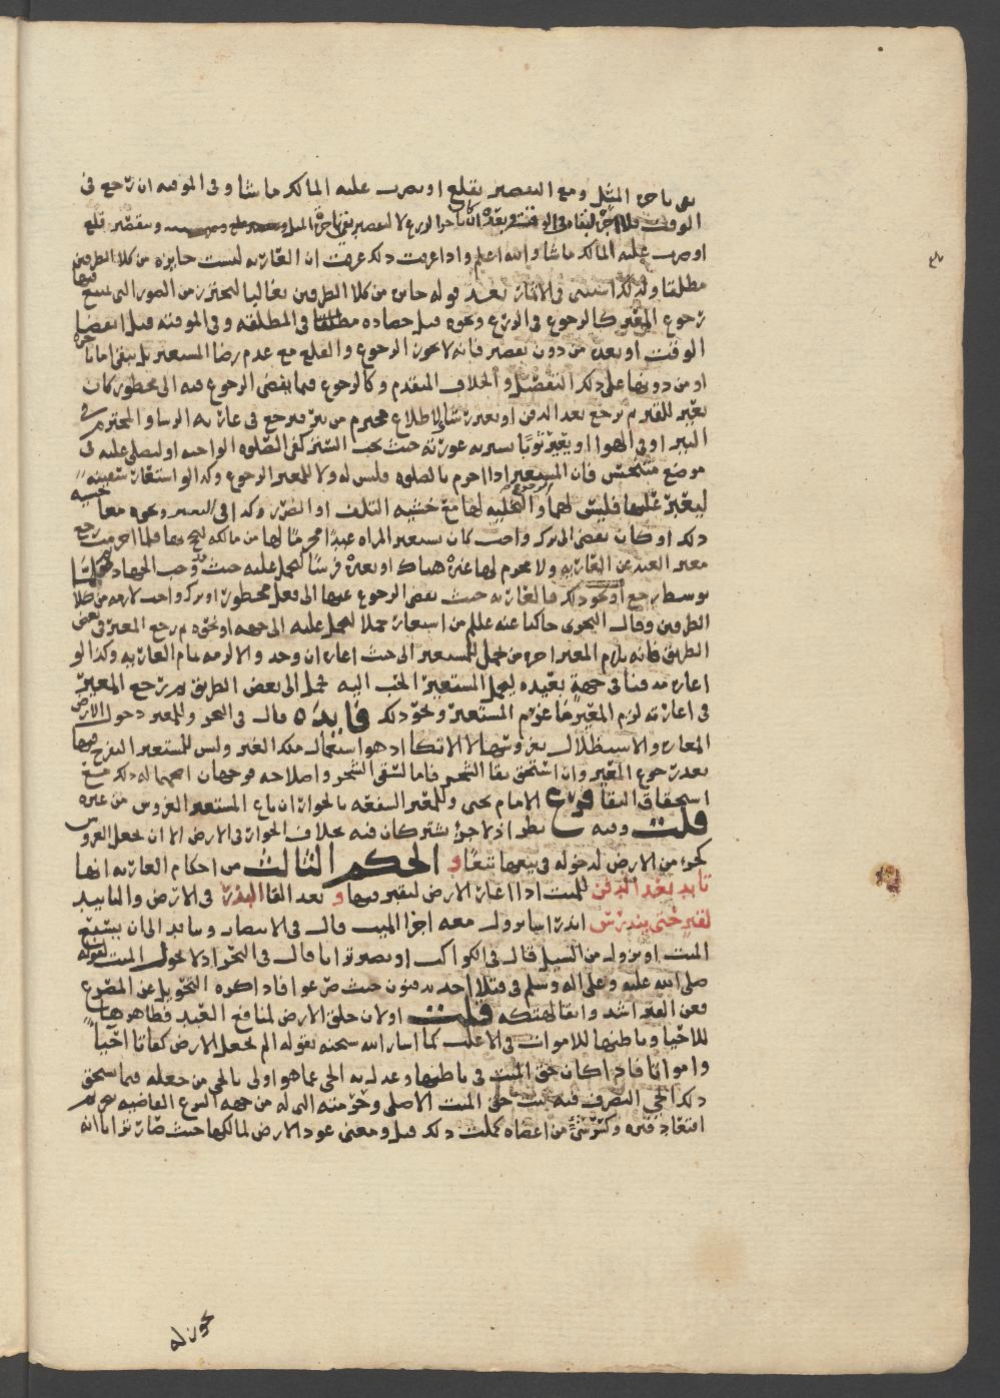 بقى باجرة المثل ومع التقصير يقلع او يضرب عليه المالك ما شا وفي الموقته ان رجع في
الوقت فلا اجرة لبقا في الوقت وبعده ان تاخر الزرع لا لتقصير بقي باجرة المثل وبتقصير قلع
او ضرب عليه المالك ما شا والله اعلم واذا عرفت ذلك عرفت ان العاريه ليست جايزه من كلا الطرفين
مطلقا ولذلك استثنى في الاثمار بعد قوله جايز من كلا الطرفين غالبا ليحترز من الصور التي يمتنع فيها
رجوع المعير كالرجوع في الزرع ونحوه قبل حصاده مطلقا في المطلقه وفي الموقته قبل انقضا
الوقت او بعده من دون تقصير فانه لا يجوز الرجوع والقلع مع عدم رضا المستعير بل يبقى اما باجرة
او من دونها على ذلك التفصيل والخلاف المتقدم وكالرجوع فيما يفضي الرجوع فيه الى محظور كان
يعير للقبر ثم يرجع بعد الدفن او يعير رشا لاطلاع محترم من بير فيرجع في عاريه الرشا والمحترم في
البير او في الهوا او يعير ثوبا يستر به عورته حيث يجب الستر كفي الصلوه الواجبه او ليصلي عليه في
موضع متنجس فان المستعير اذا احرم بالصلوه فليس له ولا للمعير الرجوع وكذا لو استعار سفينه
ليعبر عليها فليس لهما الرجوع والتخليه لها مع خشيه التلف او الضرر وكذا في البعير ونحوه مع خشيه
ذلك او كان يفضي الى ترك واجب كان يستعير المراه عبدا محرما لها من مالكه ليحج بها فلما احرمت رجع
معير العبد عن العاريه ولا محرم لها غيره هناك او يعيره فرسا ليحمل عليه حيث قد وجب الجهاد فلما
توسط رجع او نحو ذلك فالعاريه حيث يفضي الرجوع عنها الى فعل محظور او ترك واجب لازمه من كلا
الطرفين وقال البحري حاكيا عنه عللم من استعار جملا ليحمل عليه الى جهه او نحوه ثم رجع المعير في بعض
الطريق فانه يلزم المعير اجره من يحمل للمستعير الى حيث اعاره ان وجد والا لزمه تمام العاريه وكذا لو
اعاره مدفنا في جهة بعيده ليحمل المستعير الحب اليه فحمل الى بعض الطريق ثم رجع المعير
في اعارته لزم المعير ما غرم المستعير ونحو ذلك فايده قال في البحر وللمعير دخول الارض
المعاره والاستظلال بغروسها لا الاتكا اذ هو استعمال ملك الغير وليس للمستعير التفرج فيها
بعد رجوع المعير وان استحق بقا الشجر فاما لسقي الشجر واصلاحه فوجهان اصحهما له ذلك مع
استحقاق البقا فرع الامام يحيى وللمعير الشفعه بالجوار ان باع المستعير الغروس من غيره
قلت وفيه نظر اذ لا جزؤ مشترك ان فيه بخلاف الجوار في الارض الا ان يجعل الغروس
كجزء من الارض لدخوله في بيعها تبعا و الحكم الثالث من احكام العاريه انها
تابد بعد الدفن للميت اذا اعار الارض ليقبر فيها و بعد القا البذر في الارض والتابيد
لقبر حتى يندرس اندراسا يزول معه اجزا الميت قال في الانتصار وتتابد الى ان ينبش
الميت او يزول من السيل قال في الكواكب او يصير ترابا قال في البحر اذ لا يحول الميت لقوله
صلى الله عليه وعلى اله وسلم في قتلا احد يدفنون حيث صرعوا فاذا كره التحويل عن المصرع
فعن القبر اشد واتقا لهتكه قلت او لان خلق الارض لمنافع العبيد فظاهرها
للاحيا وباطنها للاموات في الاغلب كما اشار الله سبحنه بقوله الم نجعل الارض كفاتا احيا
وامواتا فاذا كان حق الميت في باطنها وعدل به الحي عما هو اولى بالحي من جعله فيما يستحق
ذلك الحي التصرف فيه ثبت حق الميت الاصلي وحرمته التي له من جهه الشرع القاضيه بتحريم
اقتعاد قبره وكسر شي من اعضاه كملت ذلك قيل ومعنى عود الارض لمالكها حيث صار ترابا انه
يجوز له